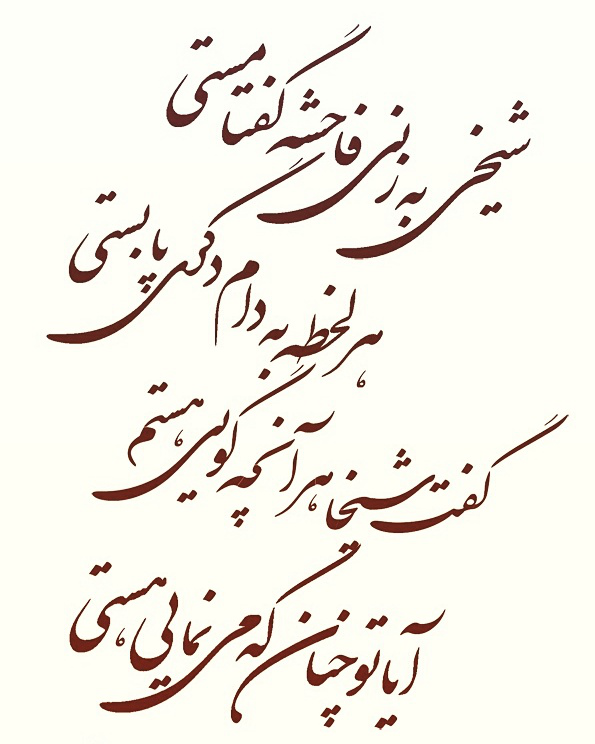 شیخی به زنی فاحشه گفتا مستی
هر لحظه به دام دگری پا بستی
گفت شیخا هر آنچه گویی هستم
آیا تو چنان که می نمایی هستی